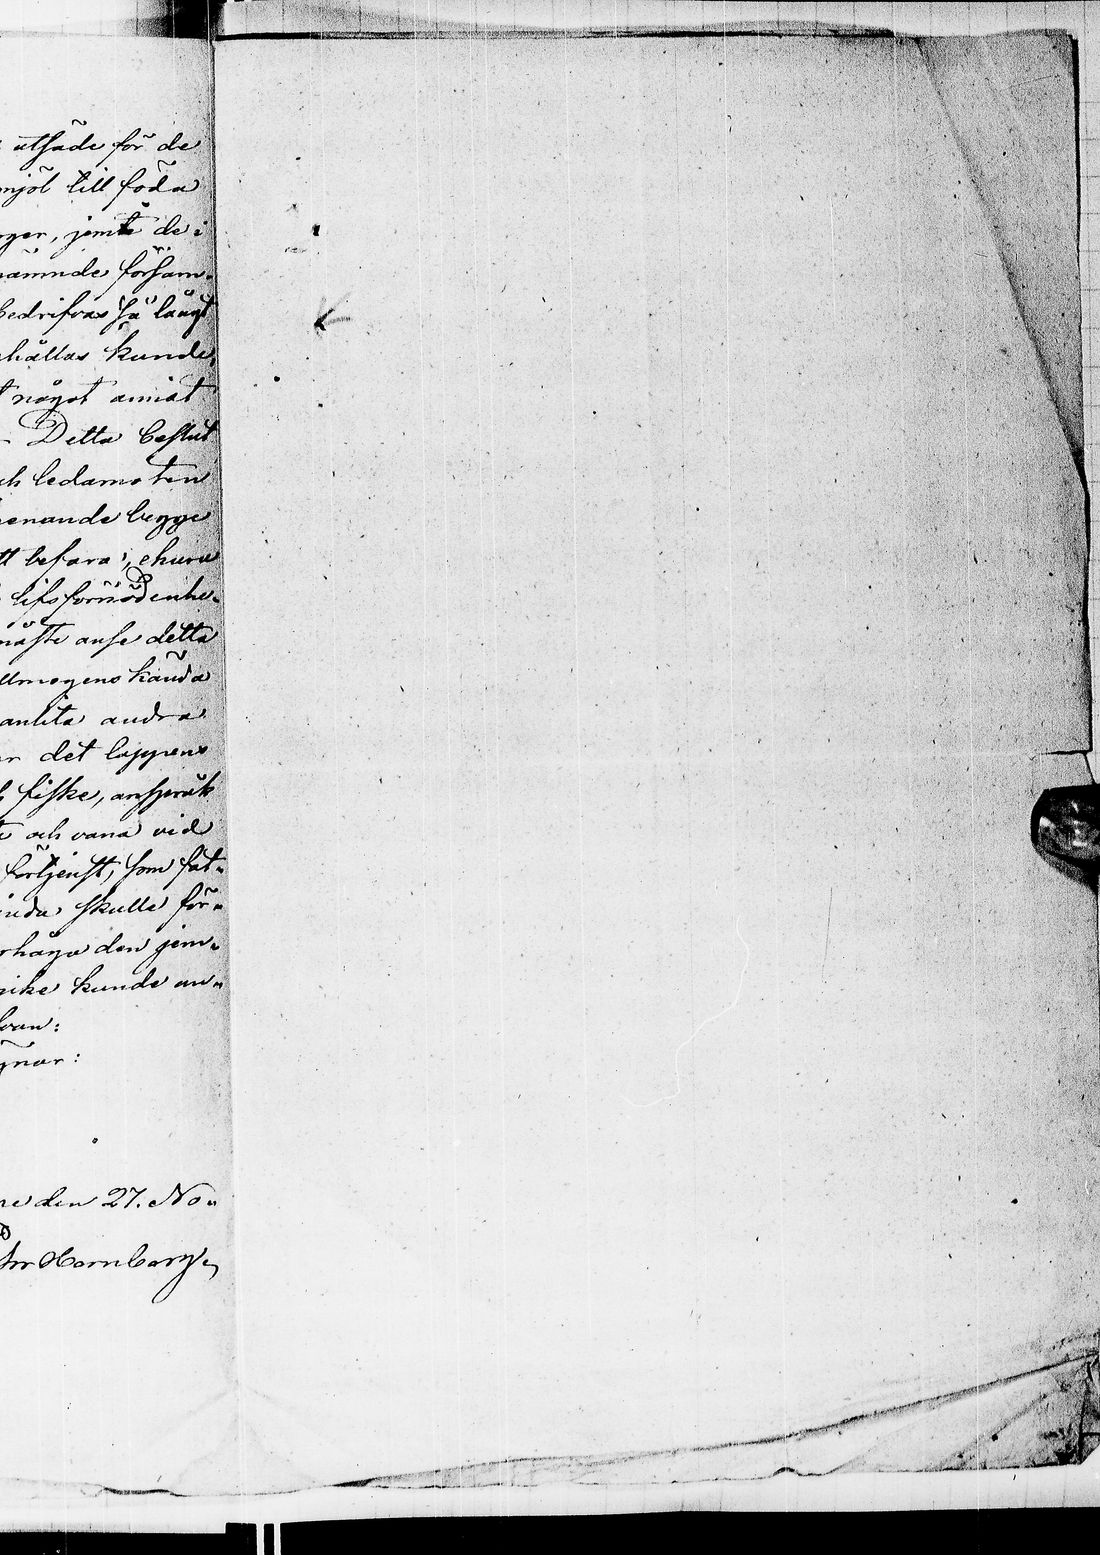 utsäde för de
mjöl till föda
jemte de i
nämnde försam-
bedrifvas så långt
hållas kunde,
något annat
- Detta beslut
ledamoten
enande begge
befara, ehuru
lifsförnödenhe-
måste anse detta
llmogens kända
anlita andra
det lappens
fiske, anspråk
och vana vid
förtjenst, som fat-
skulle för-
den jem-
kunde an-
den 27. No-
Hornberg,